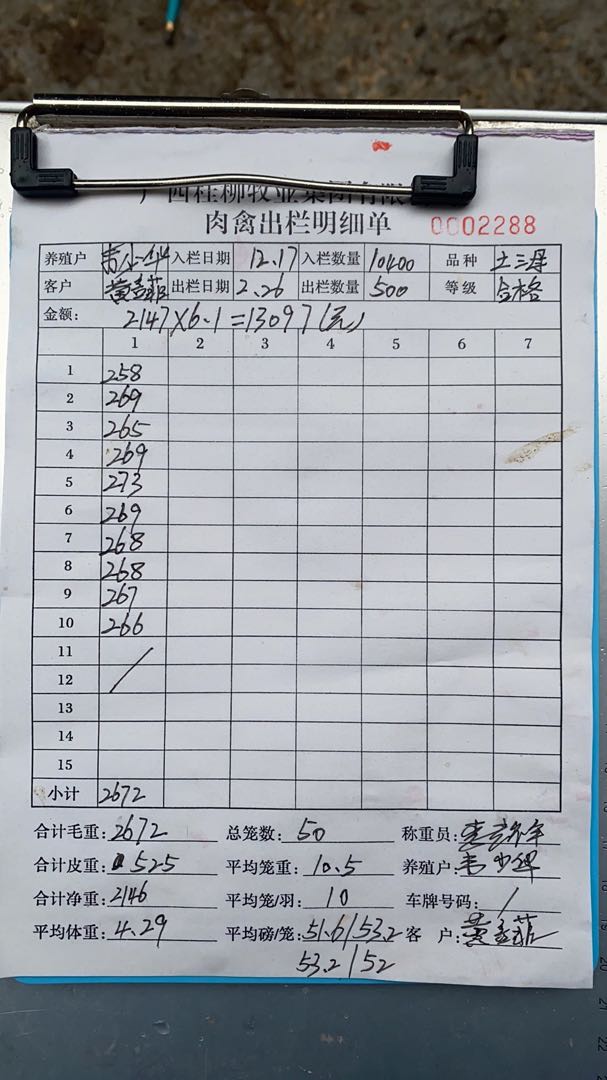 广西桂柳牧业集团有限
肉禽出栏明细单 0002288
养殖户 入栏日期 12.17 入栏数量 10400 品种 土三母
客户 黄孟菲 出栏日期 2.26 出栏数量 500 等级 合格
金额: 2147×6.1=13097(元)
1 2 3 4 5 6 7
1 258
2 269
3 265
4 269
5 273
6 269
7 268
8 268
9 267
10 266
11
12
13
14
15
小计 2672
合计毛重: 2672 总笼数: 50 称重员:
合计皮重: 525 平均笼重: 10.5 养殖户:
合计净重: 2146 平均笼/羽: 10 车牌号码: /
平均体重: 4.29 平均磅/笼: 51.6/53.2 客 户: 黄孟菲
53.2/52
20
21
22